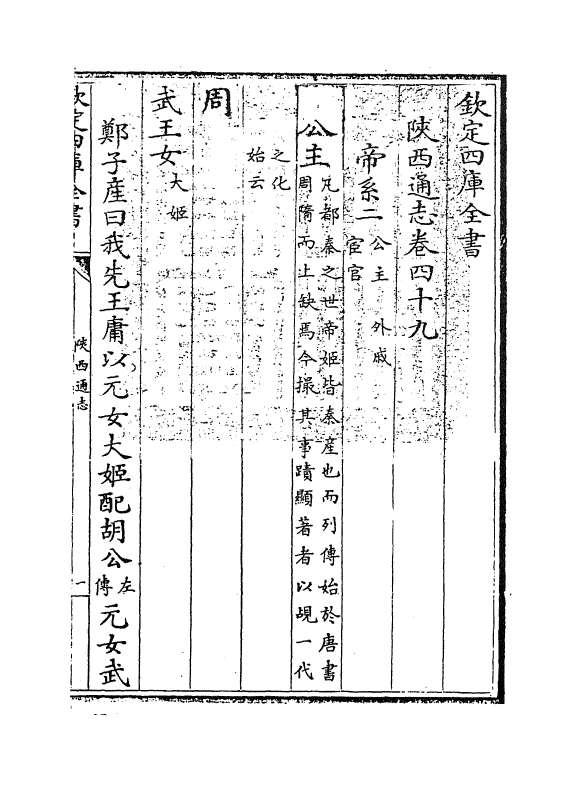 欽定四庫全書
陝西通志卷四十九
帝系二 公主 外戚
宦官
公主 凡都秦之世帝姬皆秦產也而列傳始於唐書
周隋而上缺焉今撮其事蹟顯著者以覘一代
之化
始云
周
武王女 大姬
鄭子產曰我先王庸以元女大姬配胡公 左傳 元女武
欽定四庫全書
陝西通志
一